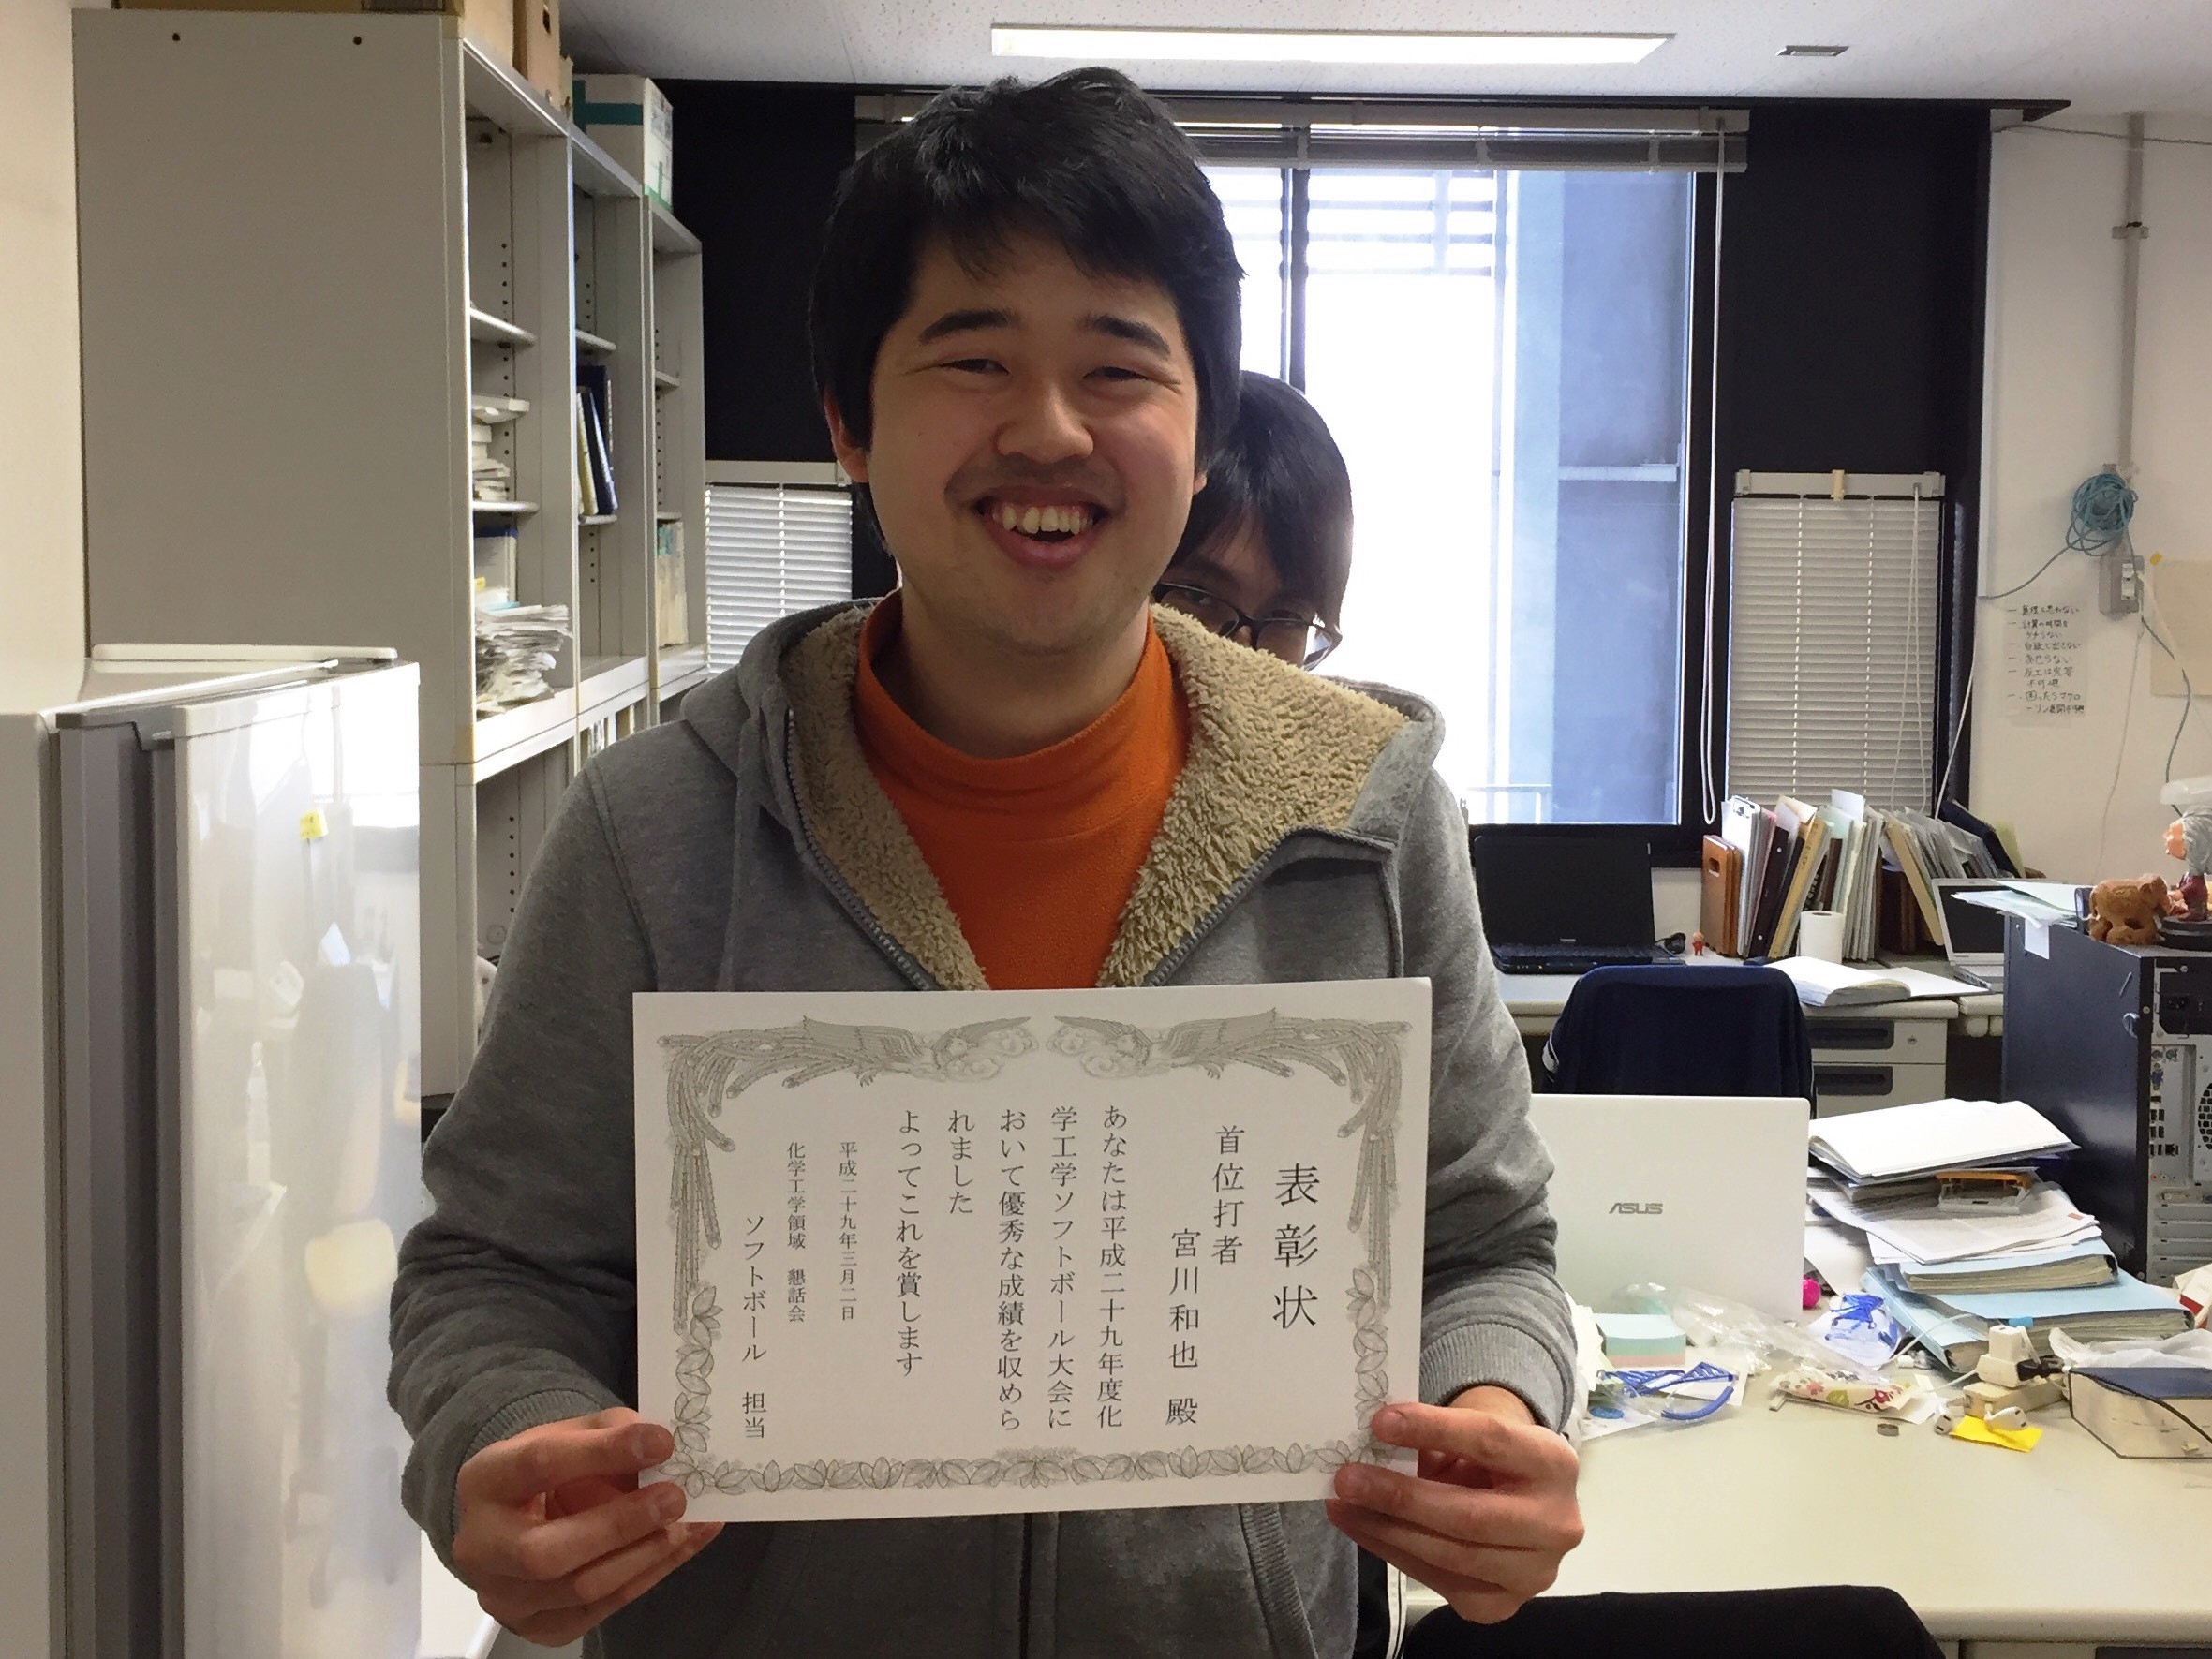 表彰状
首位打者
宮川和也 殿
あなたは平成二十九年度化
学工学ソフトボール大会に
おいて優秀な成績を収めら
れました
よってこれを賞します
平成二十九年三月二日
化学工学領域 懇話会
ソフトボール 担当
ASUS